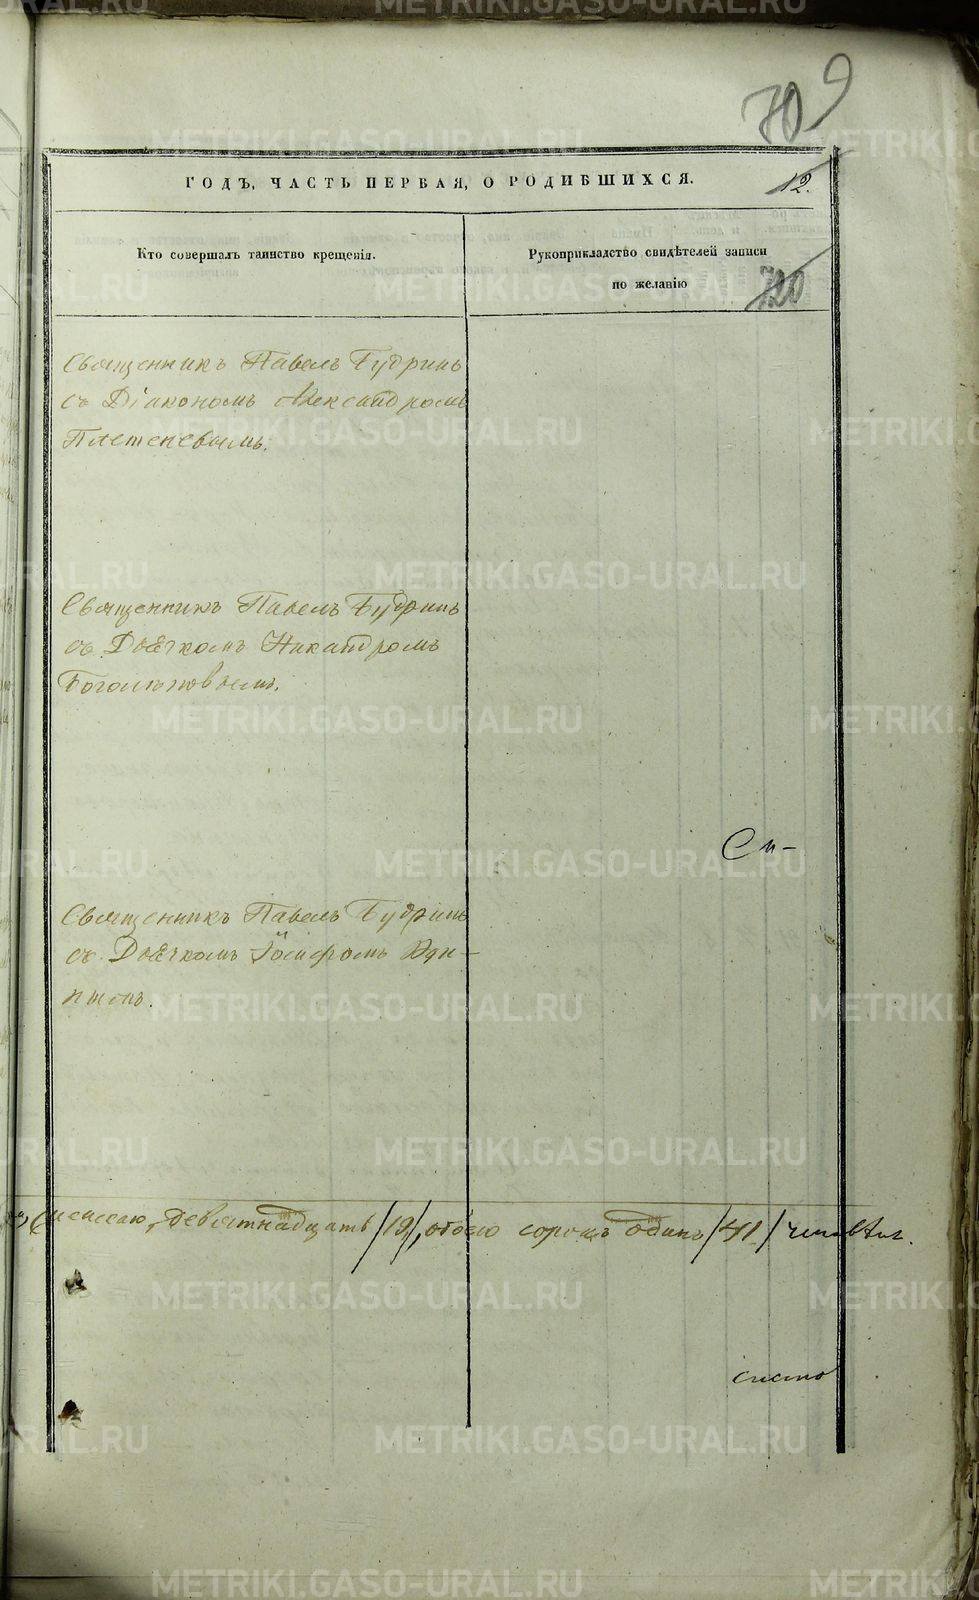 709
ГОДЪ, ЧАСТЬ ПЕРВАЯ, О РОДИВШИХСЯ.
12.
Кто совершалъ таинство крещенія.
Рукоприкладство свидѣтелей записи
по желанію
720
Священникъ Павелъ Будринъ
съ Діакономъ Александромъ
Плетеневымъ.
Священникъ Павелъ Будринъ
съ Дьячкомъ Никандромъ
Боголѣповымъ.
Священникъ Павелъ Будринъ
съ Дьячкомъ Іосифомъ
девятнадцать /19/, обоего сорокъ одинъ /41/
METRIKI.GASO-URAL.RU